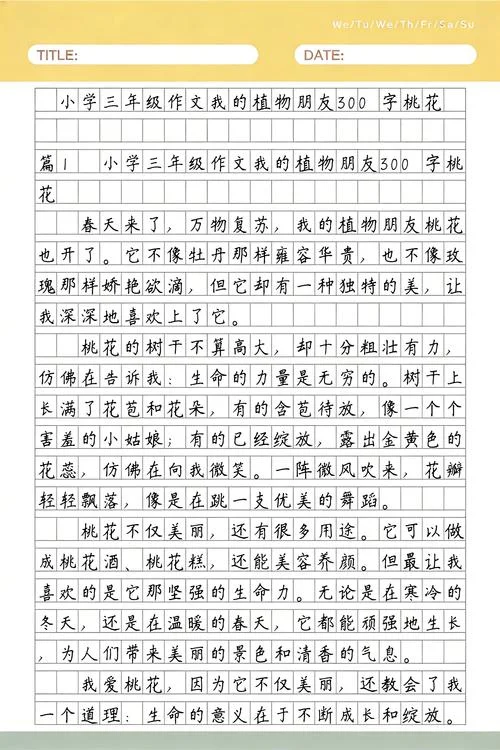 We/Tu/We/Th/Fr/Sa/Su
TITLE:
DATE:
小学三年级作文我的植物朋友300 字桃花
篇1 小学三年级作文我的植物朋友300 字桃
花
春天来了，万物复苏，我的植物朋友桃花
也开了。它不像牡丹那样雍容华贵，也不像玫
瑰那样娇艳欲滴，但它却有一种独特的美，让
我深深地喜欢上了它。
桃花的树干不算高大，却十分粗壮有力，
仿佛在告诉我：生命的力量是无穷的。树干上
长满了花苞和花朵，有的含苞待放，像一个个
害羞的小姑娘；有的已经绽放，露出金黄色的
花蕊，仿佛在向我微笑。一阵微风吹来，花瓣
轻轻飘落，像是在跳一支优美的舞蹈。
桃花不仅美丽，还有很多用途。它可以做
成桃花酒、桃花糕，还能美容养颜。但最让我
喜欢的是它那坚强的生命力。无论是在寒冷的
冬天，还是在温暖的春天，它都能顽强地生长
，为人们带来美丽的景色和清香的气息。
我爱桃花，因为它不仅美丽，还教会了我
一个道理：生命的意义在于不断成长和绽放。